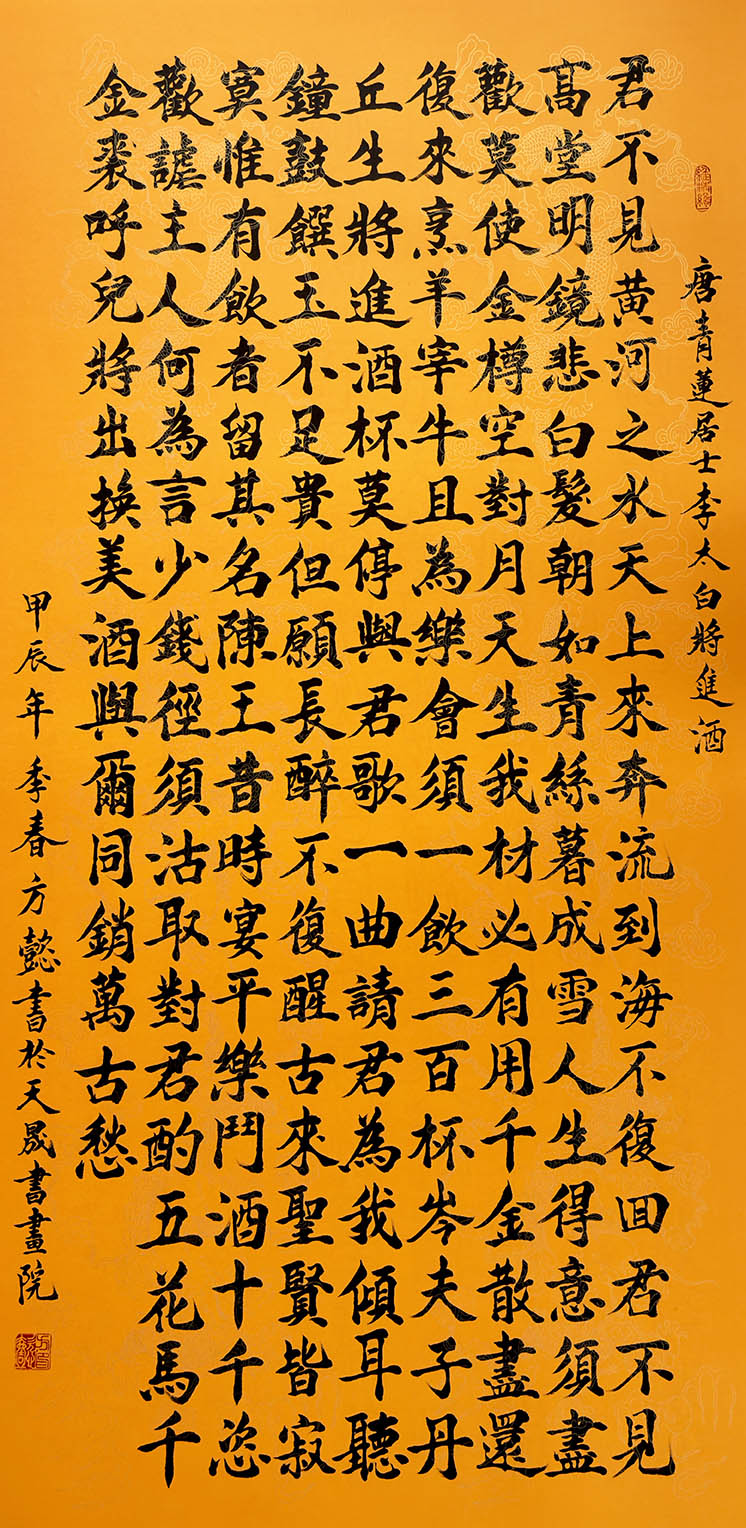 唐青蓮居士李太白將進酒
君不見黄河之水天上來奔流到海不復囬君不見
高堂明鏡悲白髮朝如青絲暮成雪人生得意須盡
歡莫使金樽空對月天生我材必有用千金散盡還
復來烹羊宰牛且為樂會須一飲三百杯岑夫子丹
丘生將進酒杯莫停與君歌一曲請君為我傾耳聽
鐘鼓饌玉不足貴但願長醉不復醒古來聖賢皆寂
寞惟有飲者留其名陳王昔時宴平樂鬥酒十千恣
歡謔主人何為言少錢徑須沽取對君酌五花馬千
金裘呼兒將出換美酒與爾同銷萬古愁
甲辰年季春方懿書於天晟書畫院